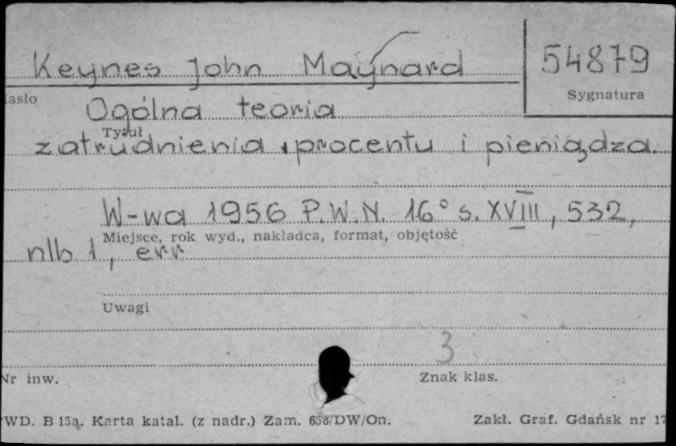 Keynes John Maynard
54879
Sygnatura
asło
Ogólna teoria
Tytuł
zatrudnienia, procentu i pieniądza.
W-wa 1956 P.W.N. 16° s. XVIII, 532,
Miejsce, rok wyd., nakładca, format, objętość
nlb 1, err
Uwagi
3
Nr inw.
Znak klas.
WD. B 15a. Karta katal. (z nadr.) Zam. /DW/On.
Zakł. Graf. Gdańsk nr 17